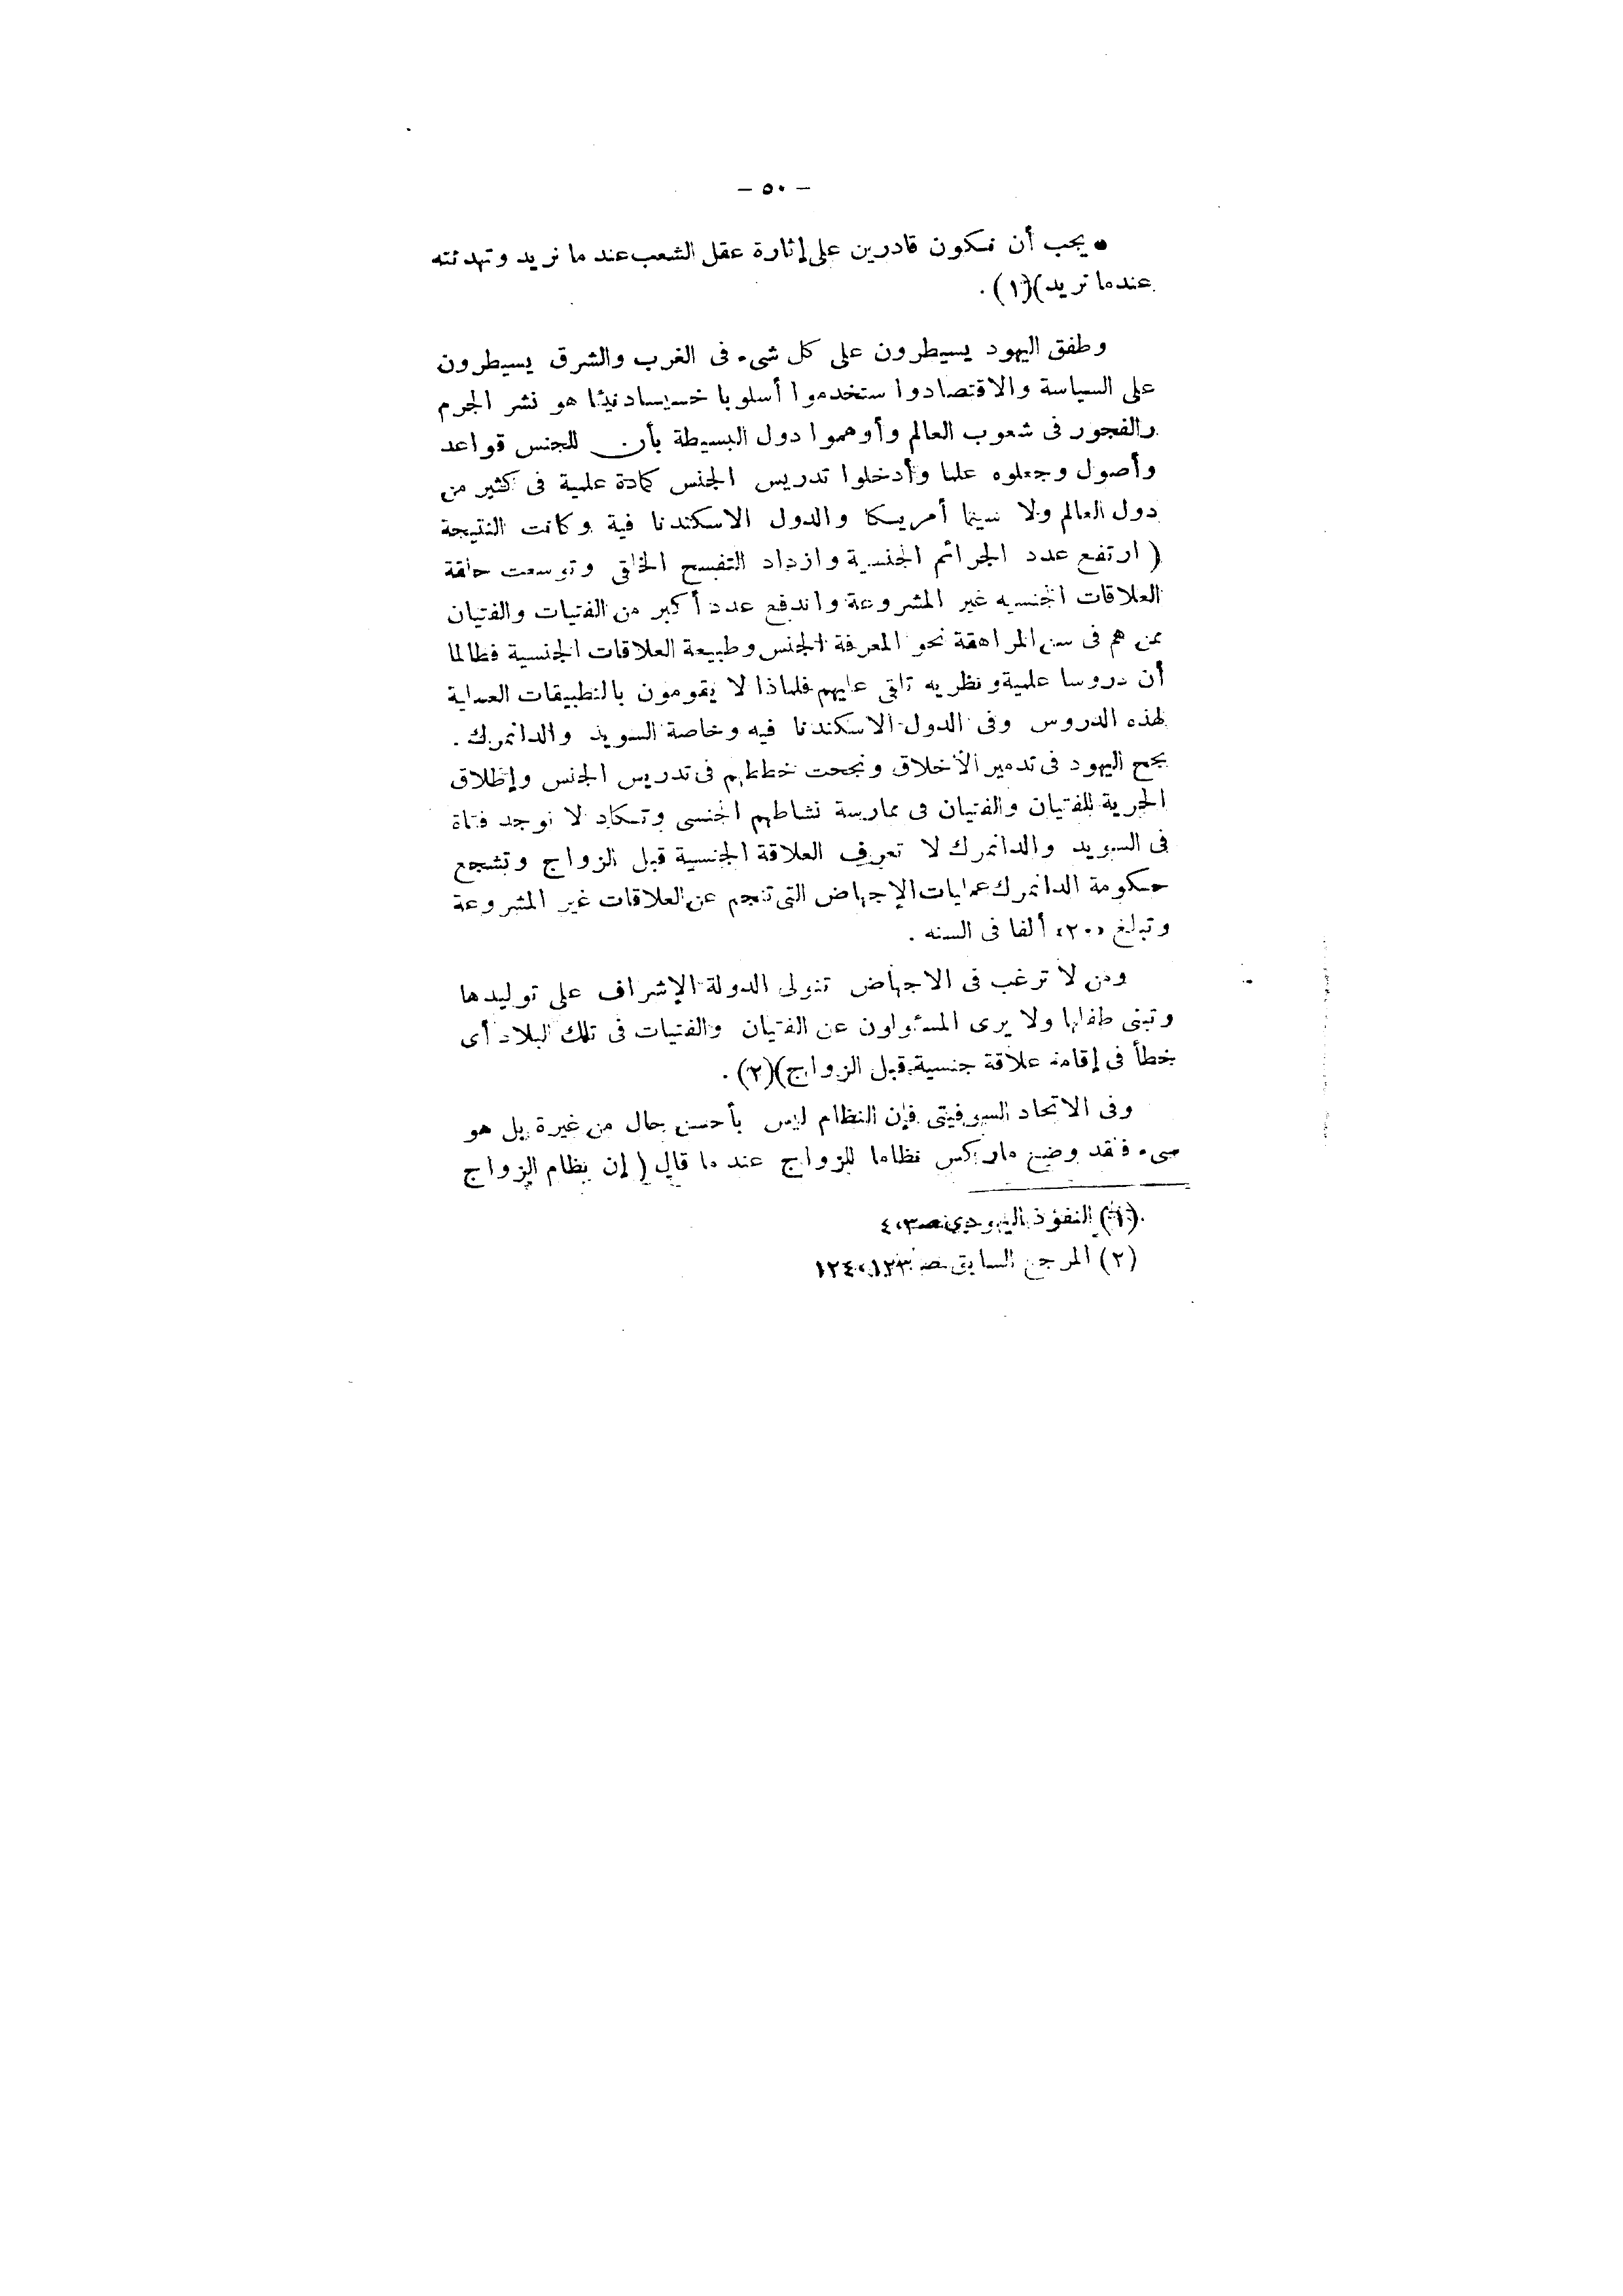 — ٥٠ —
• يجب أن نكون قادرين على إثارة عقل الشعب عند ما نريد وتهدئته
عندما نريد)(١).
وطفق اليهود يسيطرون على كل شىء فى الغرب والشرق يسيطرون
على السياسة والاقتصاد واستخدموا أسلوبا خسيسا دنيئا هو نشر الجرم
والفجور فى شعوب العالم وأوهموا دول البسيطة بأن للجنس قواعد
وأصول وجعلوه علما وأدخلوا تدريس الجنس كمادة علمية فى كثير من
دول العالم ولا سيما أمريكا والدول الاسكندنا فية وكانت النتيجة
( ارتفع عدد الجرائم الجنسية وازداد التفسح الخلقى وتوسعت حلقة
العلاقات الجنسيه غير المشروعة واندفع عدد أكبر من الفتيات والفتيان
ممن هم فى سن المراهقة نحو المعرفة الجنس وطبيعة العلاقات الجنسية فطالما
أن دروسا علمية ونظريه تلقى عليهم فلماذا لا يقومون بالتطبيقات العملية
لهذه الدروس وفى الدول الاسكندنا فيه وخاصة السويد والدانمرك .
نجح اليهود فى تدمير الأخلاق ونجحت خططهم فى تدريس الجنس وإطلاق
الحرية للفتيان والفتيان فى ممارسة نشاطهم الجنسى وتكاد لا توجد فتاة
فى السويد والدانمرك لا تعرف العلاقة الجنسية قبل الزواج وتشجع
حكومة الدانمرك عمليات الإجهاض التى تنجم عن العلاقات غير المشروعة
وتبلغ «٢٠» ألفا فى السنه .
ومن لا ترغب فى الاجهاض تتولى الدولة الإشراف على توليدها
وتبنى طفلها ولا يرى المسئولون عن الفتيان والفتيات فى تلك البلاد أى
خطأ فى إقامة علاقة جنسية قبل الزواج)(٢).
وفى الاتحاد السوفيتى فإن النظام ليس بأحسن حال من غيرة بل هو
سىء فقد وضع ماركس نظاما للزواج عند ما قال ( إن نظام الزواج
(١) النفوذ اليهودي ص ٤،٣
(٢) المرجع السابق ص ١٢٤،١٢٣